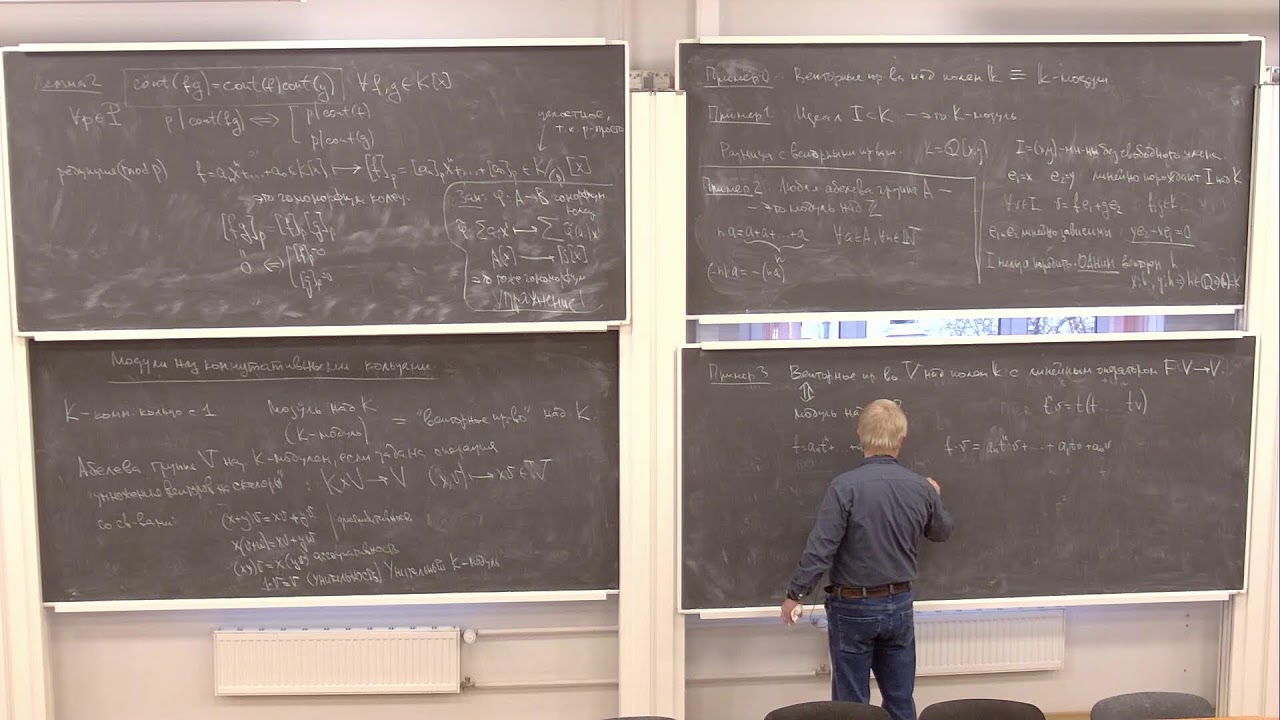 Лемма 2 cont(fg)=cont(f)cont(g) ∀f,g∈K[x]
∀p∈P p|cont(fg) ⟺ [ p|cont(f)
p|cont(g)
целостное,
т.к. p-просто
редукция (mod p) f=aₙxⁿ+...+a₀∈K[x] ⟼ [f]ₚ=[aₙ]ₚxⁿ+...+[a₀]ₚ∈K/(p)[x]
это гомоморфизм колец
[fg]ₚ=[f]ₚ[g]ₚ
0 ⟺ [ [f]ₚ=0
[g]ₚ=0
Зам: φ: A→B гомоморфизм
колец
A[x] → B[x]
это тоже гомоморфизм
Упражнение!
Модули над коммутативными кольцами
K-комм. кольцо с 1 Модуль над K = "векторные пр-во" над K.
(K-модуль)
Абелева группа V наз. K-модулем, если задана операция
"умножение векторов на скаляры": K×V→V (x,v)⟼xv∈V
со св-вами: (x+y)v=xv+yv дистрибутивность
x(v+w)=xv+xw
(xy)v=x(yv) ассоциативность
1·v=v (унитальность) Унитальный K-модуль
Пример 0 Векторные пр-ва над полем k ≡ k-модули
Пример 1 Идеал I⊂K — это K-модуль
Разница с векторными пр-вами. K=Q[x,y] I=(x,y)-мн-ны без свободного члена
e₁=x e₂=y линейно порождают I над K
∀v∈I v=fe₁+ge₂ f,g∈K
e₁,e₂ линейно зависимы ye₂-xe₁=0
I нельзя породить ОДНИМ вектором h
Пример 2 Любая абелева группа A —
— это модуль над Z
na=a+a+...+a ∀a∈A, ∀n∈N
n
(-n)a=-(na)
Пример 3 Векторное пр-во V над полем k с линейным оператором F:V→V.
⇕
модуль над
tⁿv=t(t... tv)
f=aₙtⁿ+...
f·v=aₙtⁿv+...+a₁tv+a₀v